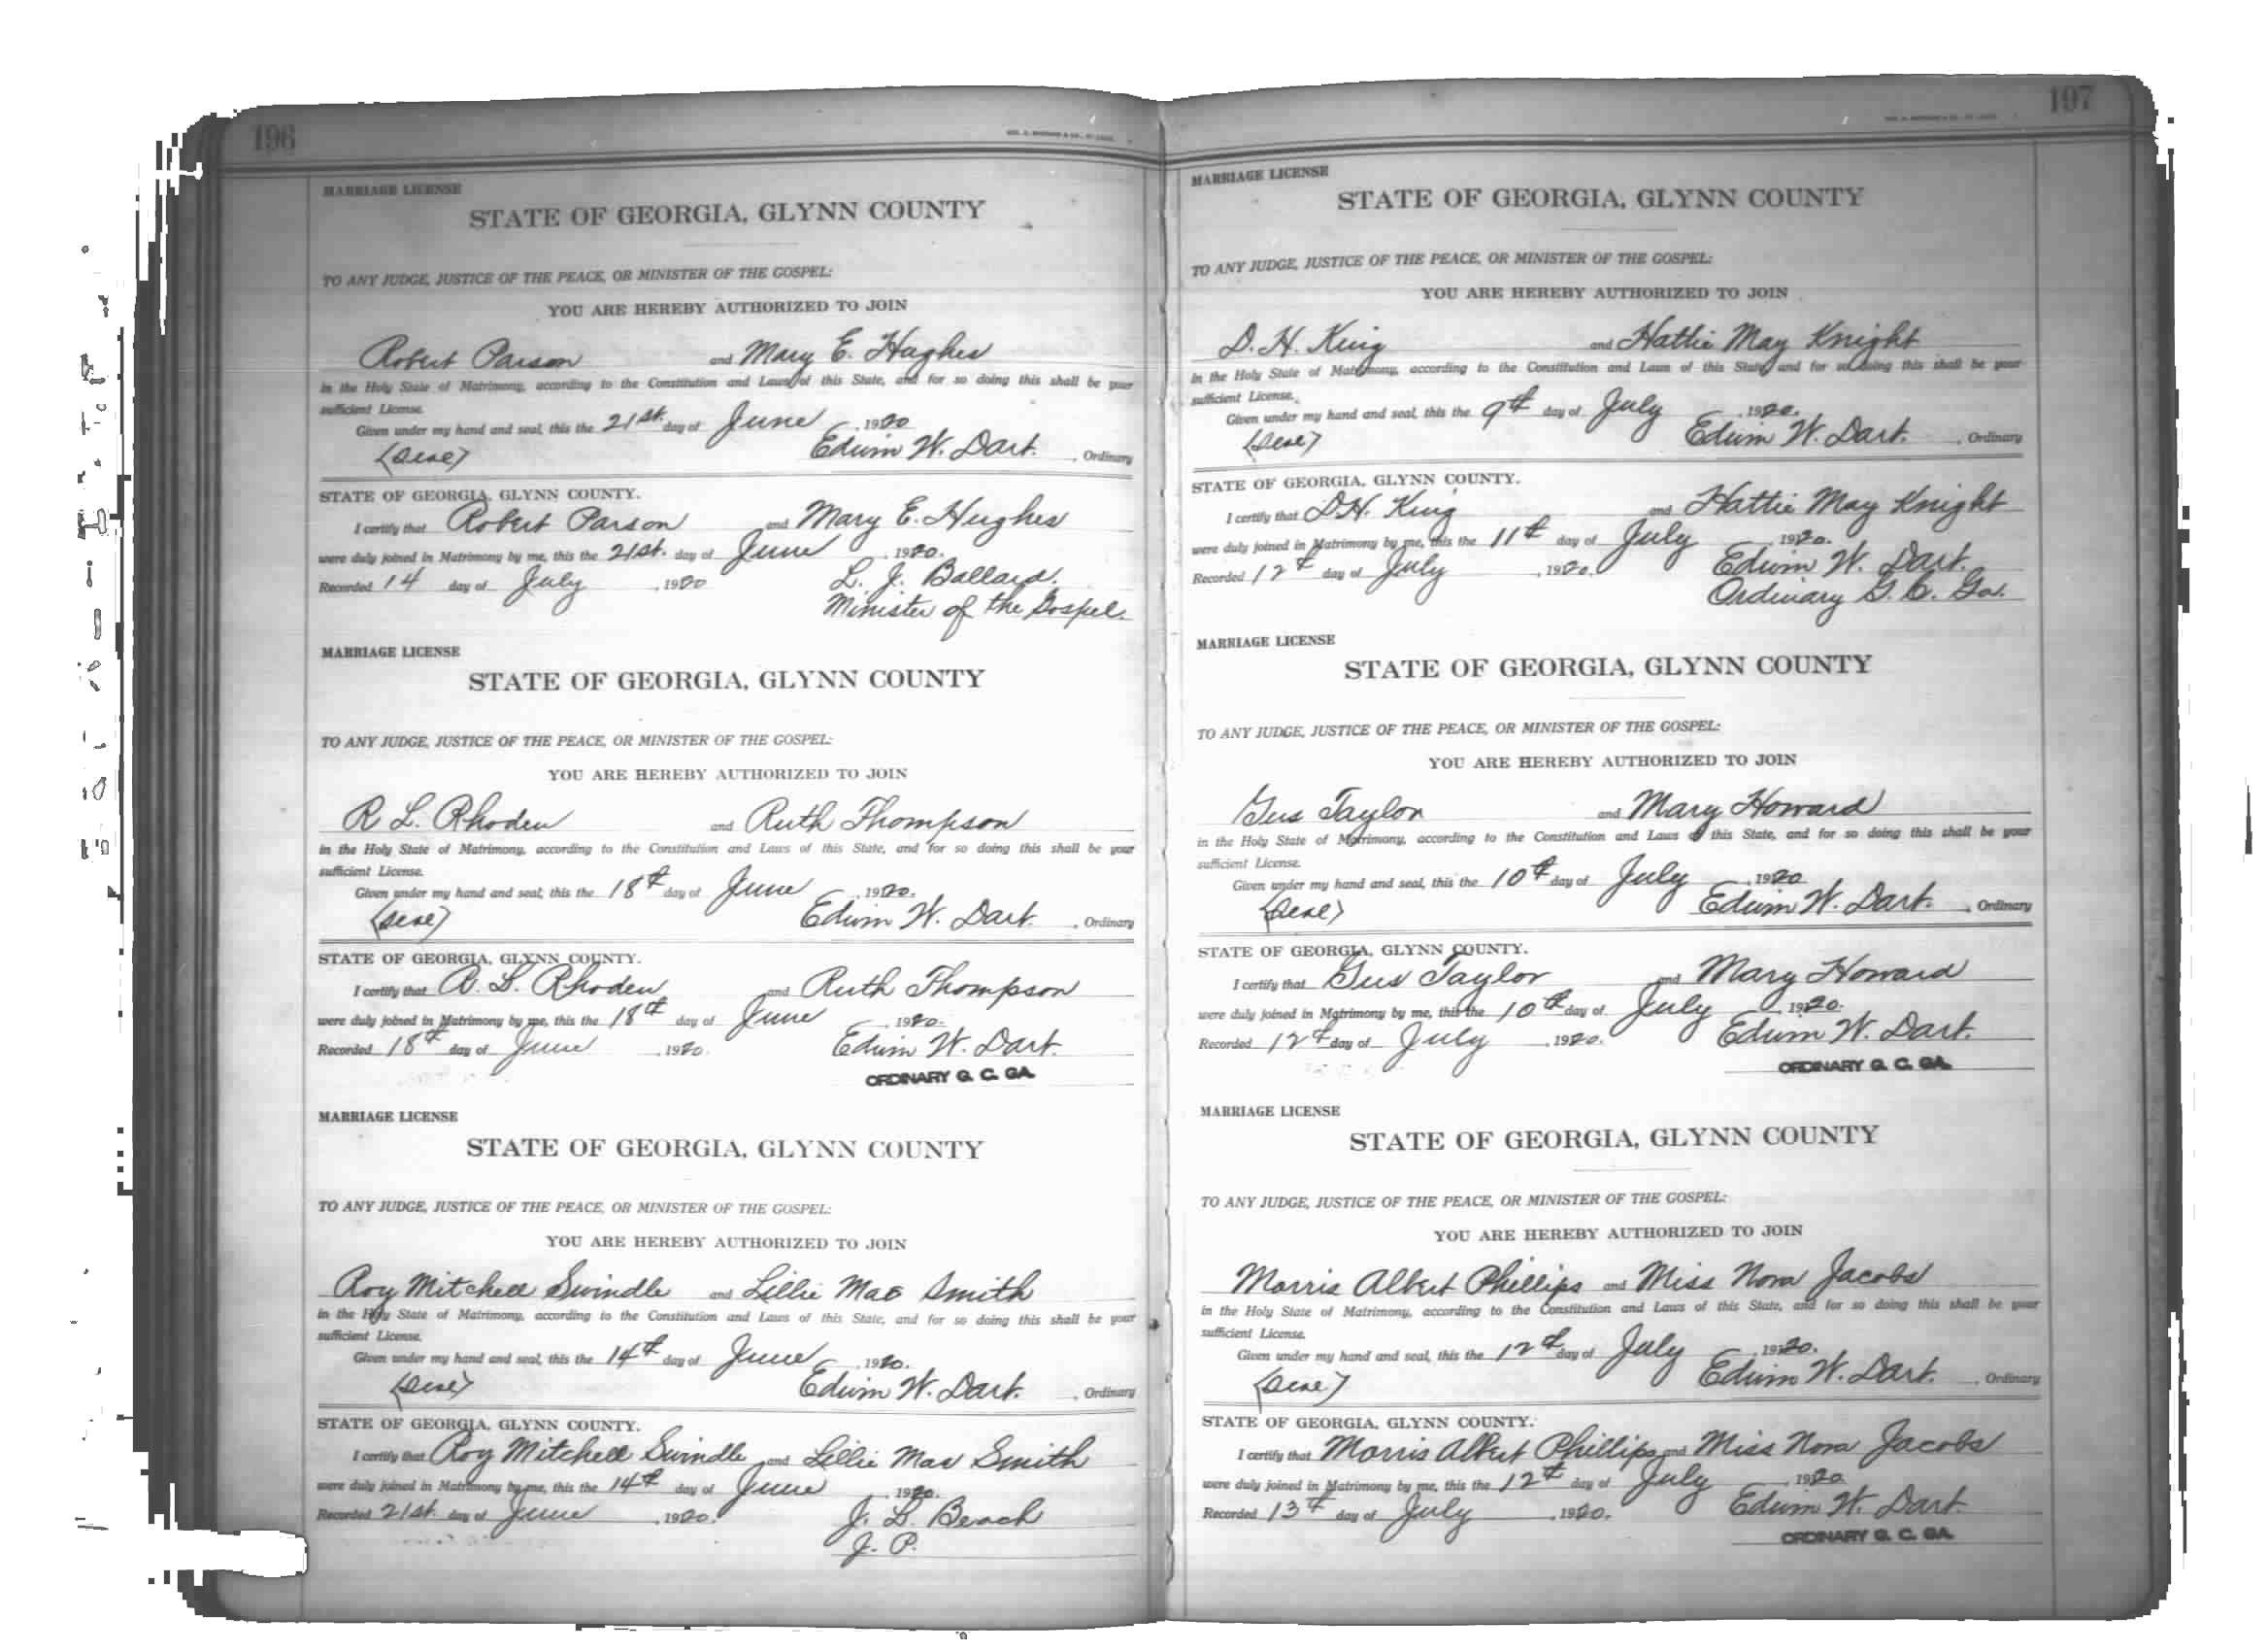 196
MARRIAGE LICENSE
STATE OF GEORGIA, GLYNN COUNTY
TO ANY JUDGE, JUSTICE OF THE PEACE, OR MINISTER OF THE GOSPEL:
YOU ARE HEREBY AUTHORIZED TO JOIN
Robert Parson and Mary E. Hughes
in the Holy State of Matrimony, according to the Constitution and Laws of this State, and for so doing this shall be your
sufficient License.
Given under my hand and seal, this the 21st. day of June, 1920
(Seal) Edwin W. Dart. , Ordinary
STATE OF GEORGIA, GLYNN COUNTY.
I certify that Robert Parson and Mary E. Hughes
were duly joined in Matrimony by me, this the 21st. day of June, 1920.
Recorded 14 day of July, 1920 L. J. Ballard.
Minister of the Gospel.
MARRIAGE LICENSE
STATE OF GEORGIA, GLYNN COUNTY
TO ANY JUDGE, JUSTICE OF THE PEACE, OR MINISTER OF THE GOSPEL:
YOU ARE HEREBY AUTHORIZED TO JOIN
R L. Rhoden and Ruth Thompson
in the Holy State of Matrimony, according to the Constitution and Laws of this State, and for so doing this shall be your
sufficient License.
Given under my hand and seal, this the 18th day of June, 1920.
(Seal) Edwin W. Dart. , Ordinary
STATE OF GEORGIA, GLYNN COUNTY.
I certify that R. L. Rhoden and Ruth Thompson
were duly joined in Matrimony by me, this the 18th day of June, 1920.
Recorded 18th day of June, 1920. Edwin W. Dart.
ORDINARY G. C. GA.
MARRIAGE LICENSE
STATE OF GEORGIA, GLYNN COUNTY
TO ANY JUDGE, JUSTICE OF THE PEACE, OR MINISTER OF THE GOSPEL:
YOU ARE HEREBY AUTHORIZED TO JOIN
Roy Mitchell Swindle and Lillie Mae Smith
in the Holy State of Matrimony, according to the Constitution and Laws of this State, and for so doing this shall be your
sufficient License.
Given under my hand and seal, this the 14th day of June, 1920.
(Seal) Edwin W. Dart. , Ordinary
STATE OF GEORGIA, GLYNN COUNTY.
I certify that Roy Mitchell Swindle and Lillie Mae Smith
were duly joined in Matrimony by me, this the 14th day of June, 1920.
Recorded 21st. day of June, 1920. J. L. Beach
J. P.
197
MARRIAGE LICENSE
STATE OF GEORGIA, GLYNN COUNTY
TO ANY JUDGE, JUSTICE OF THE PEACE, OR MINISTER OF THE GOSPEL:
YOU ARE HEREBY AUTHORIZED TO JOIN
D. H. King and Hattie May Knight
in the Holy State of Matrimony, according to the Constitution and Laws of this State, and for so doing this shall be your
sufficient License.
Given under my hand and seal, this the 9th day of July, 1920.
(Seal) Edwin W. Dart. , Ordinary
STATE OF GEORGIA, GLYNN COUNTY.
I certify that D.H. King and Hattie May Knight
were duly joined in Matrimony by me, this the 11th day of July, 1920.
Recorded 12th day of July, 1920. Edwin W. Dart.
Ordinary G. C. Ga.
MARRIAGE LICENSE
STATE OF GEORGIA, GLYNN COUNTY
TO ANY JUDGE, JUSTICE OF THE PEACE, OR MINISTER OF THE GOSPEL:
YOU ARE HEREBY AUTHORIZED TO JOIN
Gus Taylor and Mary Howard
in the Holy State of Matrimony, according to the Constitution and Laws of this State, and for so doing this shall be your
sufficient License.
Given under my hand and seal, this the 10th day of July, 1920
(Seal) Edwin W. Dart. , Ordinary
STATE OF GEORGIA, GLYNN COUNTY.
I certify that Gus Taylor and Mary Howard
were duly joined in Matrimony by me, this the 10th day of July, 1920.
Recorded 12th day of July, 1920. Edwin W. Dart.
ORDINARY G. C. GA.
MARRIAGE LICENSE
STATE OF GEORGIA, GLYNN COUNTY
TO ANY JUDGE, JUSTICE OF THE PEACE, OR MINISTER OF THE GOSPEL:
YOU ARE HEREBY AUTHORIZED TO JOIN
Morris Albert Phillips and Miss Nora Jacobs
in the Holy State of Matrimony, according to the Constitution and Laws of this State, and for so doing this shall be your
sufficient License.
Given under my hand and seal, this the 12th day of July, 1920.
(Seal) Edwin W. Dart. , Ordinary
STATE OF GEORGIA, GLYNN COUNTY.
I certify that Morris Albert Phillips and Miss Nora Jacobs
were duly joined in Matrimony by me, this the 12th day of July, 1920
Recorded 13th day of July, 1920. Edwin W. Dart.
ORDINARY G. C. GA.